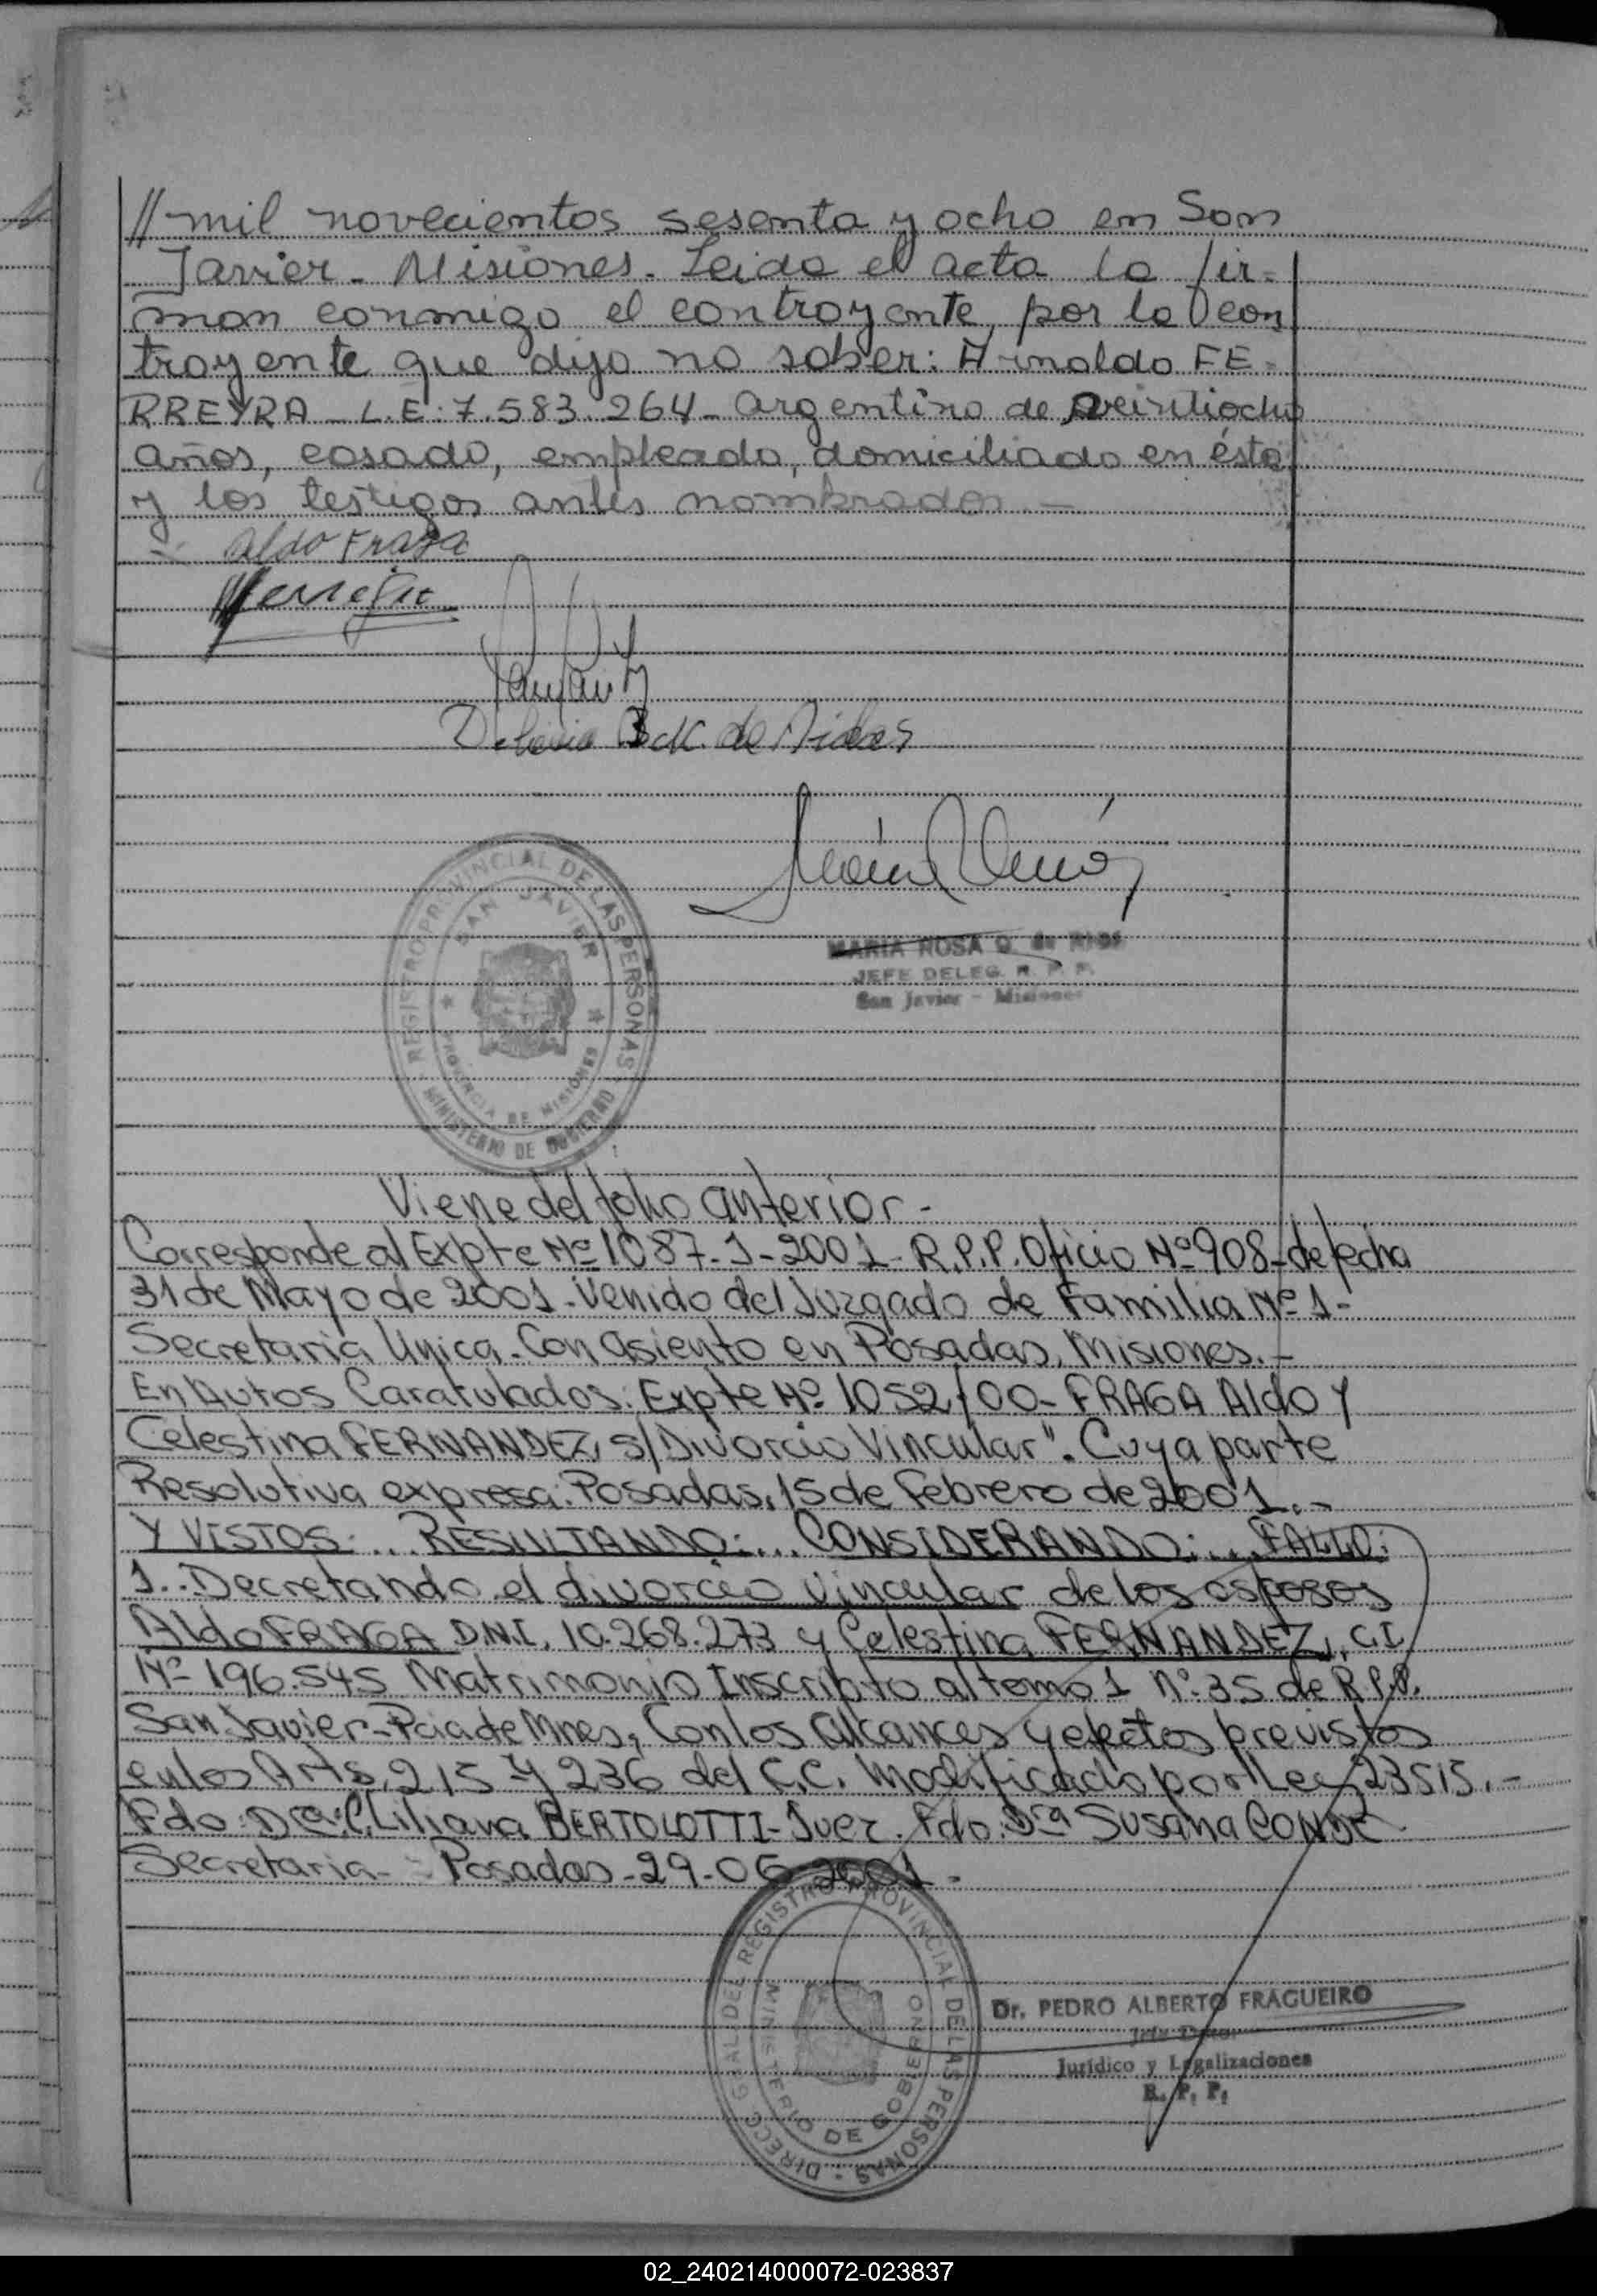 // mil novecientos sesenta y ocho en San
Javier - Misiones. Leida el acta la fir=
man conmigo el contrayente, por la con
trayente que dijo no saber: Arnaldo FE=
RREYRA - L.E: 7.583.264 - argentino de veintiocho
años, casado, empleado, domiciliado en ésta
y los testigos antes nombrados. -
Aldo Fraga
de
MARIA ROSA O. de RIOS
JEFE DELEG. R. P. P.
San Javier - Misiones
REGISTRO PROVINCIAL DE LAS PERSONAS
SAN JAVIER
PROVINCIA DE MISIONES
MINISTERIO DE GOBIERNO
Viene del folio anterior -
Corresponde al Expte Nº 1087-J-2001 - R.P.P. Oficio Nº 908 - de fecha
31 de Mayo de 2001 - Venido del Juzgado de Familia Nº 1 -
Secretaria Unica - Con asiento en Posadas, Misiones. -
En Autos Caratulados: Expte Nº 1052/00 - FRAGA Aldo Y
Celestina FERNANDEZ, s/Divorcio Vincular". Cuya parte
Resolutiva expresa: Posadas, 15 de febrero de 2001. -
Y VISTOS: ... RESULTANDO: ... CONSIDERANDO: ... FALLO:
1.. Decretando el divorcio vincular de los esposos
Aldo FRAGA D.N.I. 10.268.273 y Celestina FERNANDEZ, C.I
Nº 196.545 Matrimonio Inscripto al tomo 1 Nº 35 de R.P.P.
San Javier - Pcia de Mnes, Con los alcances y efectos previstos
en los Arts. 215 y 236 del C.C. Modificado por Ley 23515. -
Fdo: Dra: C. Liliana BERTOLOTTI - Juez. Fdo. Dra Susana CONDE
Secretaria - Posadas - 29-06-2001 -
DIRECC. GRAL DEL REGISTRO PROVINCIAL DE LAS PERSONAS
MINISTERIO DE GOBIERNO
Dr. PEDRO ALBERTO FRAGUEIRO
Jurídico y Legalizaciones
R. P. P.
02_240214000072-023837